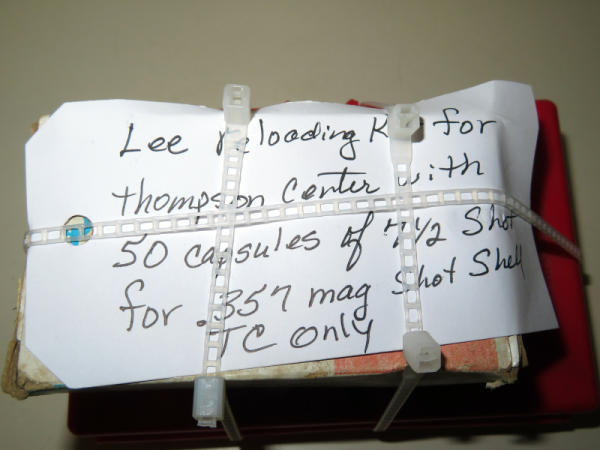 Lee Reloading Kit for
Thompson Center with
50 capsules of 7½ Shot
for .357 mag Shot Shell
TC Only